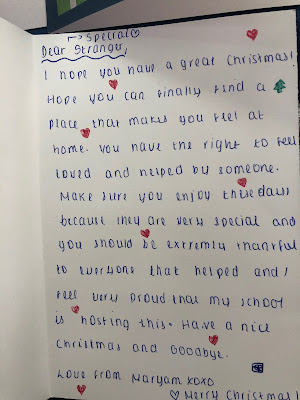 → Special ♡
Dear Stranger,
I hope you have a great Christmas!
Hope you can finally find a
place that makes you feel at
home. You have the right to feel
loved and helped by someone.
Make sure you enjoy these days
because they are very special and
you should be extremely thankful
to everyone that helped and I
feel very proud that my school
is hosting this. Have a nice
Christmas and Goodbye.
Love From Maryam xoxo
♡ Merry Christmas!